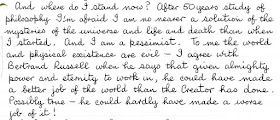 And where do I stand now? After 50 years study of
philosophy I'm afraid I am no nearer a solution of the
mysteries of the universe and life and death than when
I started. And I am a pessimist. To me the world
and physical existence are evil – I agree with
Bertrand Russell when he says that given almighty
power and eternity to work in, he could have made
a better job of the world than the Creator has done.
Possibly true – he could hardly have made a worse
job of it!